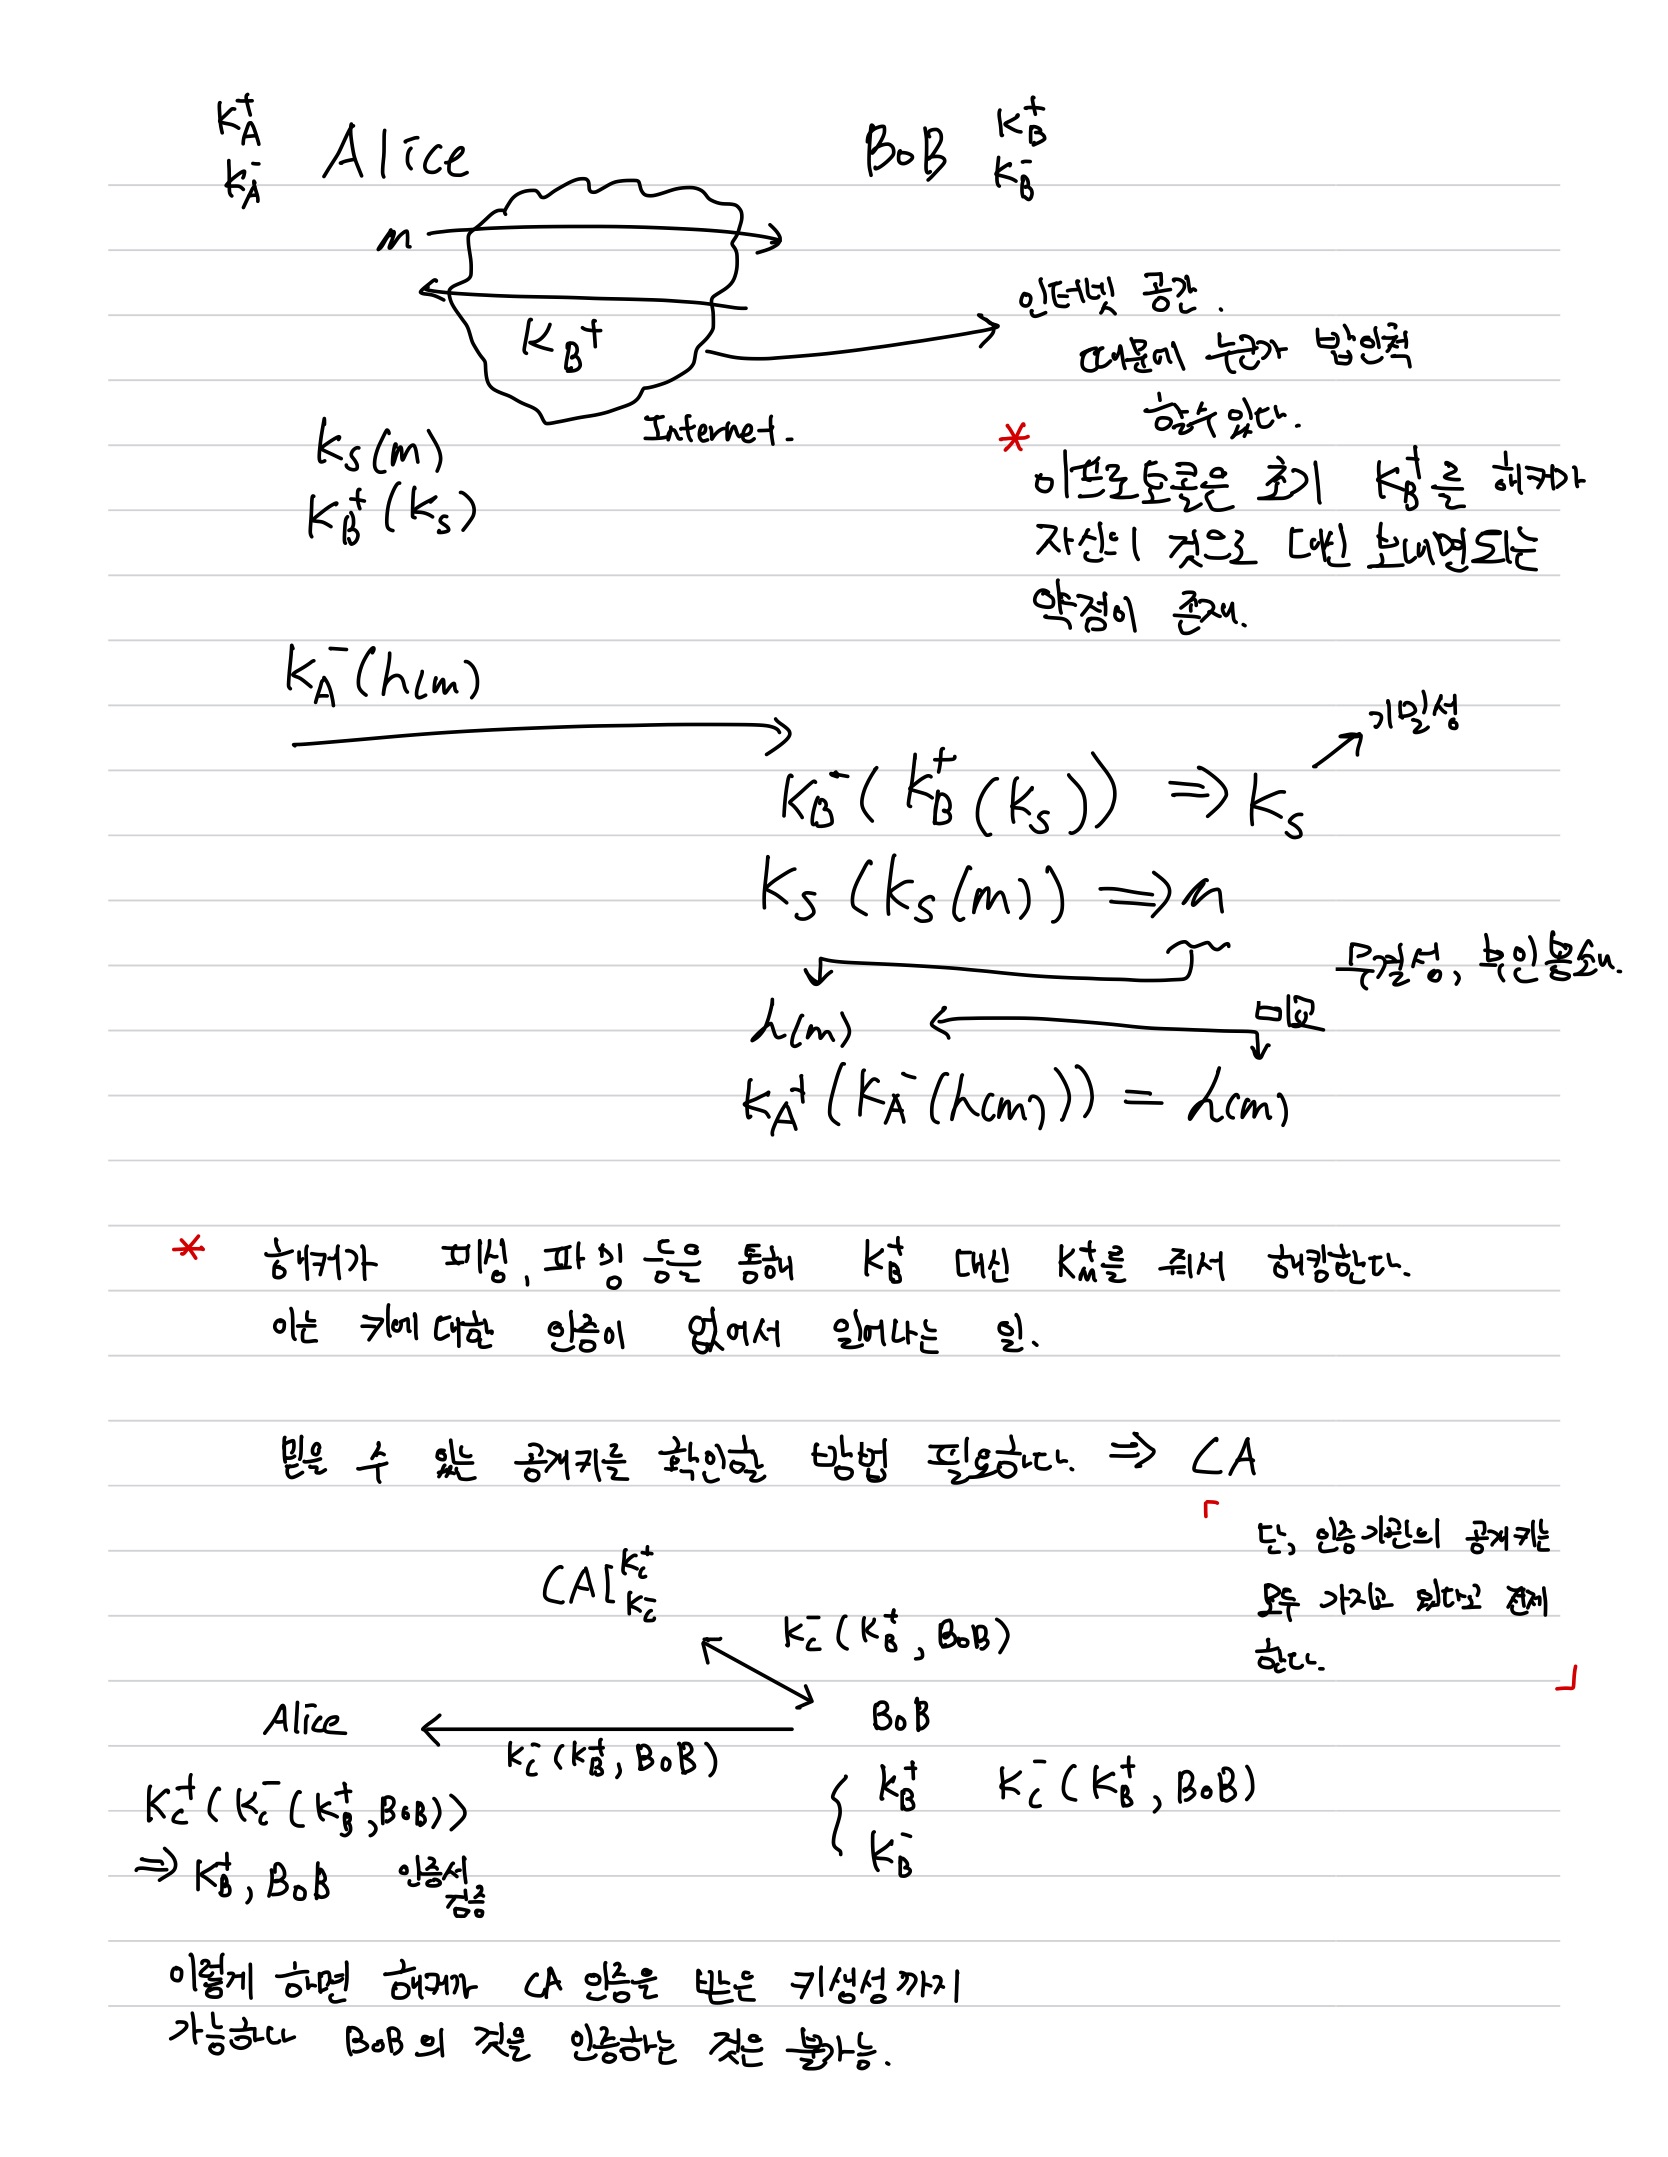 K_A^+
K_A^-
Alice
BoB
K_B^+
K_B^-
m
K_B^+
Internet.
인터넷 공간.
때문에 누군가 밥인척
할수 있다.
K_S(m)
K_B^+(K_S)
* 이프로토콜은 초기 K_B^+를 해커가
자신의 것으로 대신 보내면되는
약점이 존재.
K_A^-(h(m)
기밀성
K_B^-(K_B^+(K_S)) ⇒ K_S
K_S(K_S(m)) ⇒ m
무결성, 부인봉쇄.
h(m)
비교
K_A^+(K_A^-(h(m))) = h(m)
* 해커가 피싱, 파싱 등을 통해 K_B^+ 대신 K_M^+를 줘서 해킹한다.
이는 키에 대한 인증이 없어서 일어나는 일.
믿을 수 있는 공개키를 확인할 방법 필요하다. ⇒ CA
「 단, 인증기관의 공개키는
모두 가지고 있다고 전제
한다. 」
CA[K_C^+
K_C^-
K_C^-(K_B^+, BoB)
Alice
BoB
K_C^-(K_B^+, BoB)
K_C^+(K_C^-(K_B^+, BoB))
⇒ K_B^+, BoB 인증서
검증
{ K_B^+
K_B^-
K_C^-(K_B^+, BoB)
이렇게 하면 해커가 CA 인증을 받은 키생성까지
가능하다 BoB의 것을 인증하는 것은 불가능.